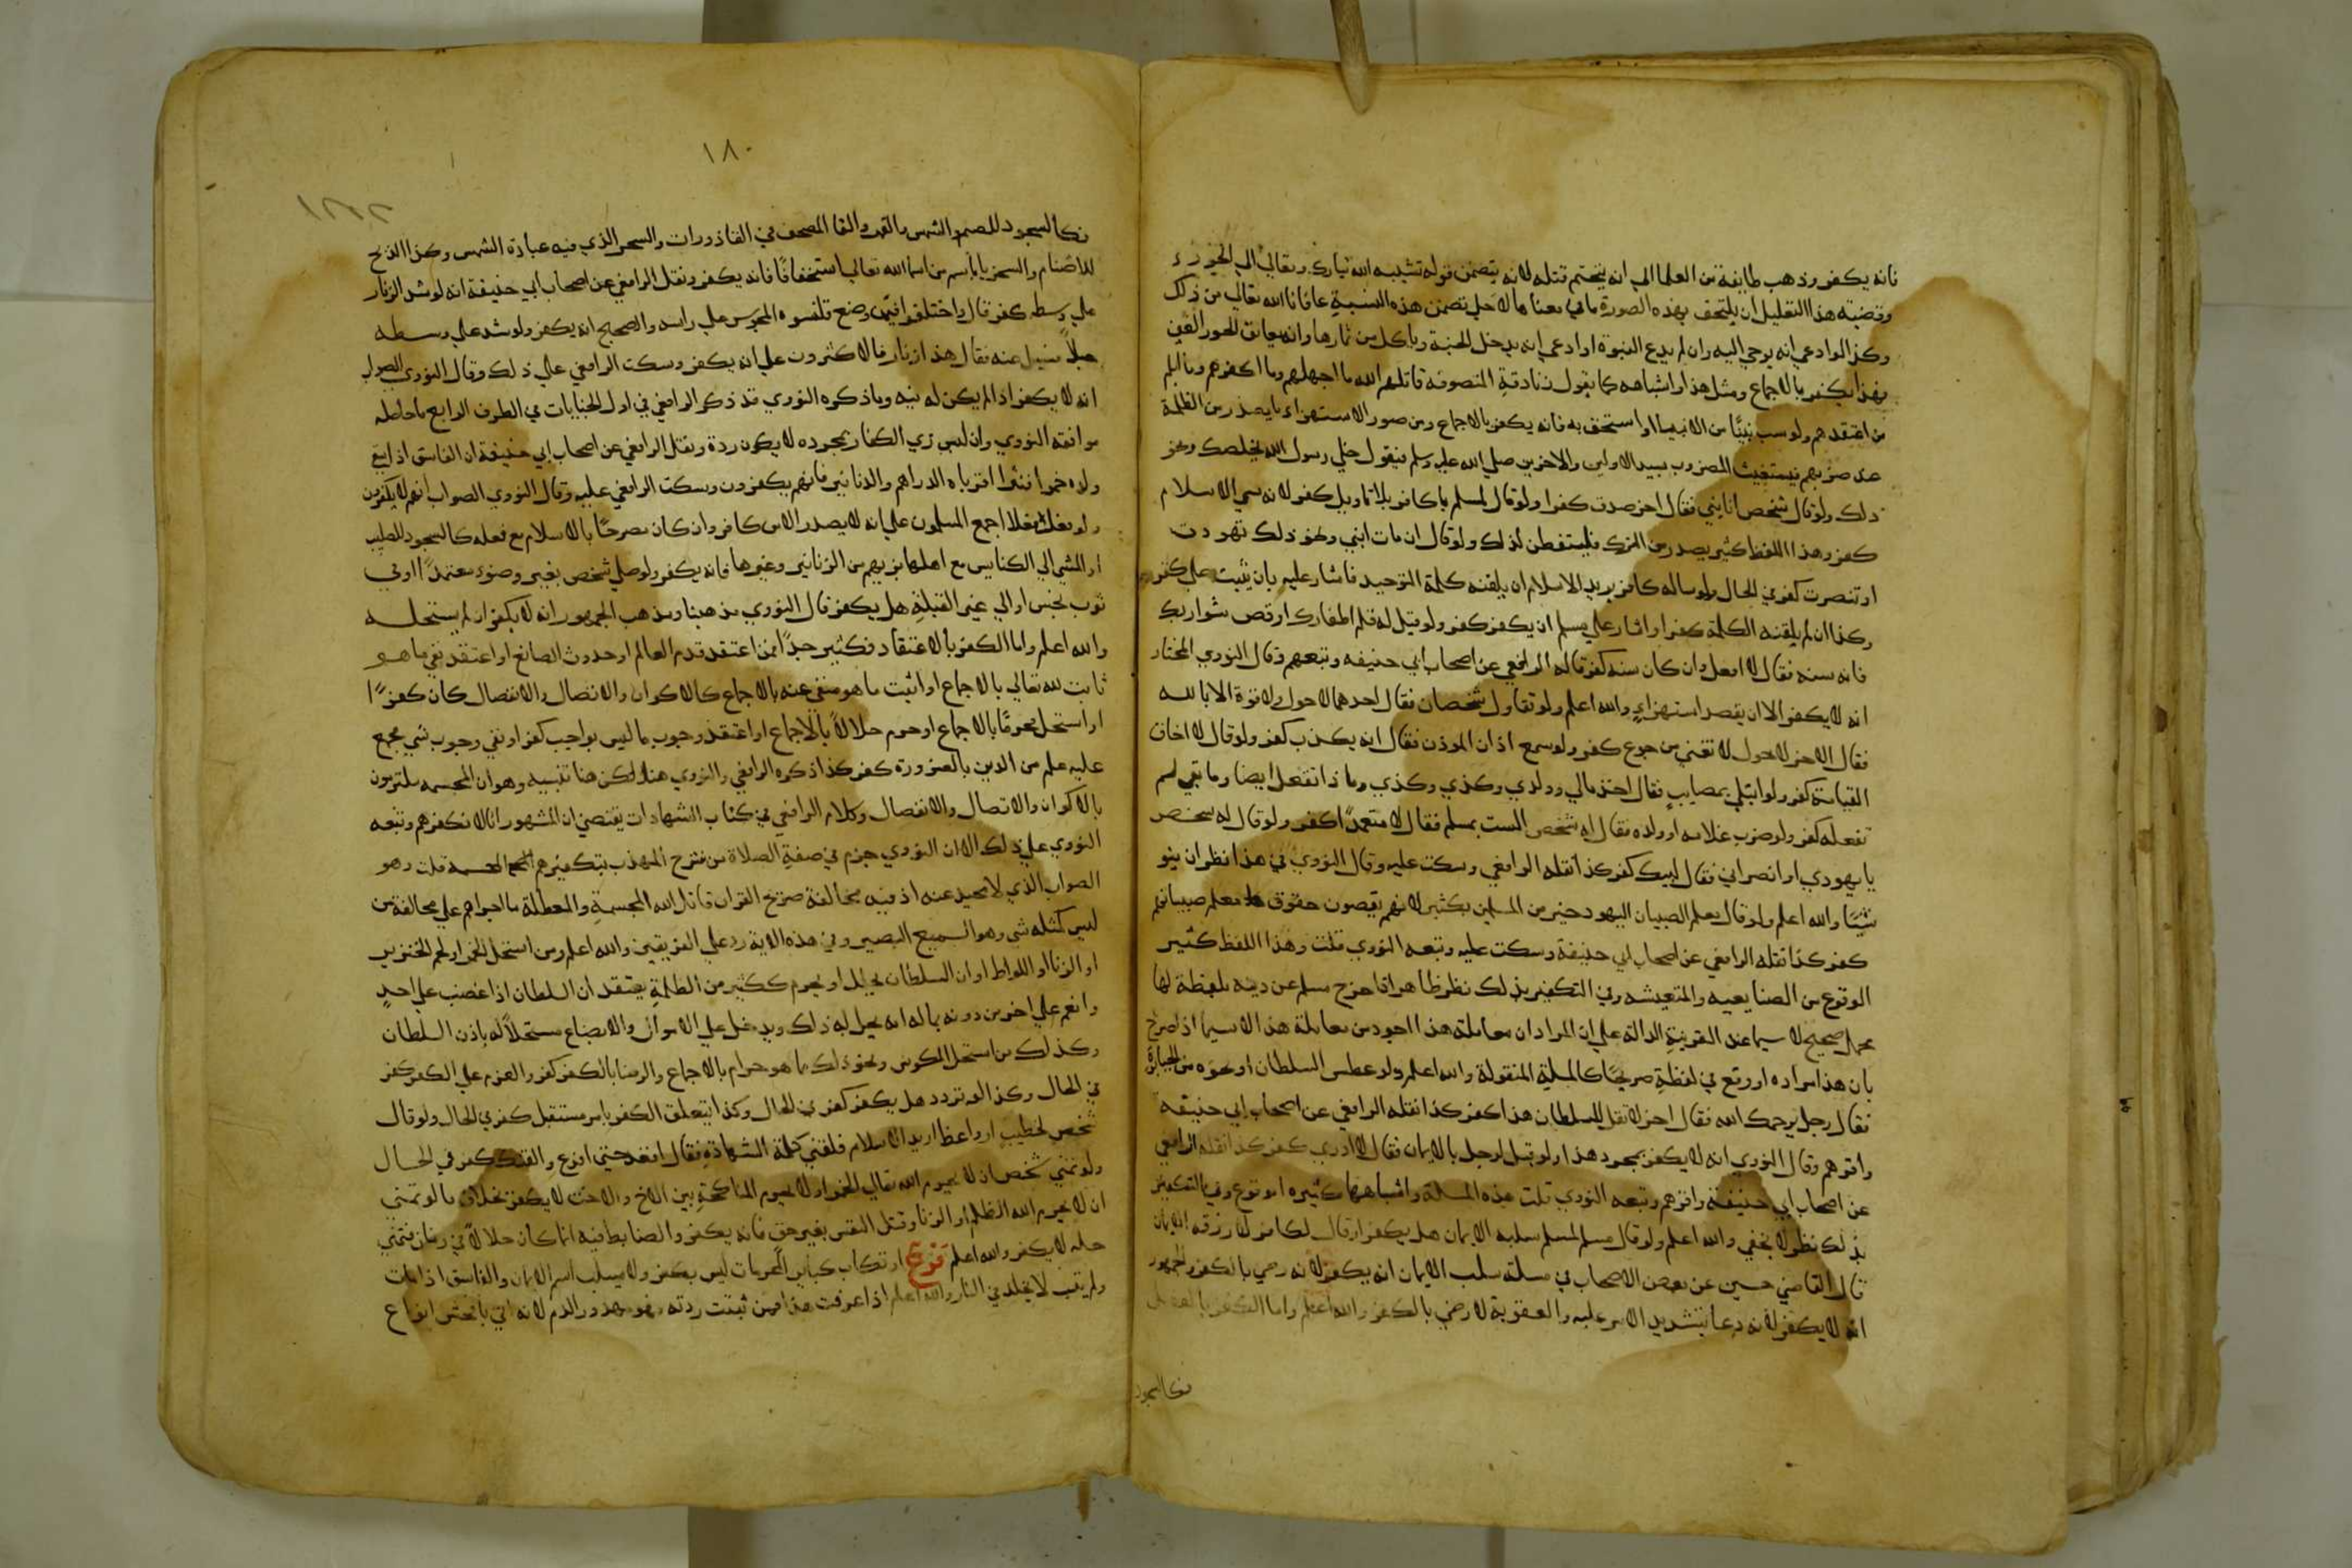 فانه يكفر وذهب طايفة من العلما الي انه يتحتم قتله لانه يتضمن قوله تشبيه الله تبارك وتعالي
وقضية هذا التعليل ان يلتحق بهذه الصورة ما في معناها لاجل تضمن هذه النسبة عافانا الله تعالي من ذلك
وكذا لو ادعي انه يوحي اليه وان لم يدع النبوة او ادعي انه يدخل الجنة وياكل من ثمارها وانه يعانق الحور العين
فهذا يكفر بالاجماع ومثل هذا واشباهه كما يقول زنادقة المتصوفة قاتلهم الله ما اجهلهم وما اكفرهم وما ابلم
من اعتقدهم ولو سب نبيًا من الانبيا او استخف به فانه يكفر بالاجماع ومن صور الاستهزاء ما يصدر من الظلمة
عند ضربهم فيستغيث المضروب بسيد الاولين والاخرين صلي الله عليه وسلم فيقول خلي رسول الله يخلصك ونحو
ذلك ولو قال شخص انا نبي فقال اخر صدقت كفرا ولو قال لمسلم يا كافر بلا تاويل كفر لانه سمي الاسلام
كفر وهذا اللفظ كثير يصدر من الترك فليتفطن لذلك ولو قال ان مات ابني ونحو ذلك تهودت
او تنصرت كفر في الحال ولو ساله كافر يريد الاسلام ان يلقنه كلمة التوحيد فاشار عليه بان يثبت علي كفره
وكذا ان لم يلقنه الكلمة كفر او اشار علي مسلم ان يكفر كفر ولو قيل له قلم اظفارك او قص شواربك
فانه سنه فقال لا افعل وان كان سنة كفر قاله الرافعي عن اصحاب ابي حنيفه وتبعهم وقال النووي المختار
انه لا يكفر الا ان يقصد استهزاءً والله اعلم ولو تقاول شخصان فقال احدهما لاحول ولا قوة الا بالله
فقال الاخر لاحول لا تغني من جوع كفر ولو سمع اذان الموذن فقال انه يكذب كفر ولو قال لا اخاف
القيامة كفر ولو ابتلي بمصايب فقال اخذ مالي وولدي وكذي وكذي وماذا تفعل ايضا وما بقي لم
تفعله كفر ولو ضرب غلامه او ولده فقال له شخص الست بمسلم فقال لا متعمدًا كفر ولو قال له شخص
يا يهودي او يا نصراني فقال لبيك كفر كذا نقله الرافعي وسكت عليه وقال النووي في هذا نظر ان لم ينو
شيئًا والله اعلم ولو قال معلم الصبيان اليهود خير من المسلمين بكثير لانهم يقضون حقوق معلم صبيانهم
كفر كذا نقله الرافعي عن اصحاب ابي حنيفة وسكت عليه وتبعه النووي قلت وهذا اللفظ كثير
الوقوع من الصنايعيه والمتعيشه وفي التكفير بذلك نظر ظاهر اذ اخراج مسلم عن دينه بلفظة لها
محمل صحيح لا سيما عند القرينة الدالة علي ان المراد ان معاملة هذا اجود من معاملة هذا لا سيما اذا صرح
بان هذا مراده او وقع في لفظة صريحًا كالمسلة المنقولة والله اعلم ولو عطس السلطان او نحوه من الجبابرة
فقال رجل يرحمك الله فقال اخر لا تقل للسلطان هذا كفر كذا نقله الرافعي عن اصحاب ابي حنيفة
واقرهم وقال النووي انه لا يكفر بمجرد هذا ولو قيل لرجل ما الايمان فقال لا ادري كفر كذا نقله الرافعي
عن اصحاب ابي حنيفة واقرهم وتبعه النووي قلت هذه المسلة واشباهها كثيره الوقوع وفي التكفير
بذلك نظر لا يخفي والله اعلم ولو قال مسلم لمسلم سلبه الله الايمان هل يكفر او قال لكافر لا رزقه الله الايمان
قال القاضي حسين عن بعض الاصحاب في مسلة سلب الايمان انه يكفر لانه رضي بالكفر والجمهور
انه لا يكفر لانه دعا بتشديد الامر عليه والعقوبة لا رضي بالكفر والله اعلم واما الكفر بالفعل
فكالسجود
١٨٠
فكالسجود للصنم والشمس والقمر والقا المصحف في القاذورات والسحر الذي فيه عبادة الشمس وكذا الذبح
للاصنام والسخريا باسم من اسما الله تعالي استخفافًا فانه يكفر ونقل الرافعي عن اصحاب ابي حنيفة انه لو شد الزنار
علي وسطه كفر قال واختلفوا فيمن وضع قلنسوة المجوس علي راسه والصحيح انه يكفر ولو شد علي وسطه
حبلًا فسيل عنه فقال هذا زنار فالاكثرون علي انه يكفر وسكت الرافعي علي ذلك وقال النووي الصواب
انه لا يكفر اذا لم يكن له نيه وما ذكره النووي قد ذكر الرافعي في اول الجنايات في الطرف الرابع ما حاصله
موافقة النووي وان لبس زي الكفار بمجرده لا يكون ردة ونقل الرافعي عن اصحاب ابي حنيفة ان الفاسق اذا سقي
ولده خمرا فنثرا اقرباه الدراهم والدنانير فانهم يكفرون وسكت الرافعي عليه وقال النووي الصواب انهم لا يكفرون
ولو فعل فعلا اجمع المسلمون علي انه لا يصدر الا من كافر وان كان مصرحًا بالاسلام مع فعله كالسجود للصليب
او المشي الي الكنايس مع اهلها بزيهم من الزنانير وغيرها فانه يكفر ولو صلي شخص بغير وضوء متعمدًا او في
ثوب نجس او الي غير القبلة هل يكفر قال النووي مذهبنا ومذهب الجمهور انه لا يكفر ان لم يستحله
والله اعلم واما الكفر بالاعتقاد فكثير جدًا فمن اعتقد قدم العالم او حدوث الصانع او اعتقد نفي ما هو
ثابت لله تعالي بالاجماع او اثبت ما هو منفي عنه بالاجماع كالاكوان والاتصال والانفصال كان كفرًا
او استحل محرمًا بالاجماع او حرم حلالًا بالاجماع او اعتقد وجوب ما ليس بواجب كفر او نفي وجوب شي مجمع
عليه علم من الدين بالضرورة كفر كذا ذكره الرافعي والنووي هنا لكن هنا تنبيه وهو ان المجسمه ملتزمون
بالاكوان والاتصال والانفصال وكلام الرافعي في كتاب الشهادات يقتضي ان المشهور انا لا نكفرهم وتبعه
النووي علي ذلك الا ان النووي جزم في صفة الصلاة من شرح المهذب بتكفيرهم المجسمه قلت وهو
الصواب الذي لا محيد عنه اذ فيه مخالفة صريح القران قاتل الله المجسمة والمعطلة ما اجراهم علي مخالفة من
ليس كمثله شي وهو السميع البصير وفي هذه الاية رد علي الفريقين والله اعلم ومن استحل الخمر او لحم الخنزير
او الزنا او اللواط او ان السلطان يحلل او يحرم ككثير من الظلمة يعتقد ان السلطان اذا غضب علي احدٍ
وانعم علي اخر من دونه بماله انه يحل له ذلك ويدخل علي الاموال والابضاع مستحلًا له باذن السلطان
وكذلك من استحل المكوس ونحو ذلك مما هو حرام بالاجماع والرضا بالكفر كفر والعزم علي الكفر كفر
في الحال وكذا لو تردد هل يكفر كفر في الحال وكذا تعليق الكفر بامر مستقبل كفر في الحال ولو قال
شخص لخطيب او واعظ اريد الاسلام فلقني كلمة الشهادة فقال اقعد حتي افرغ والقنك كفر في الحال
ولو تمني شخص ان لا يحرم الله تعالي الخمر او لا يحرم المناكحة بين الاخ والاخت لا يكفر بخلاف ما لو تمني
ان لا يحرم الله الظلم او الزنا وقتل النفس بغير حق فانه يكفر والضابط فيه ان ما كان حلالًا في زمان فتمني
حله لا يكفر والله اعلم فرع ارتكاب كباير المحرمات ليس بكفر ولا يسلب اسم الايمان والفاسق اذا مات
ولم يتب لا يخلد في النار والله اعلم اذا عرفت هذا فمن ثبتت ردته فهو مهدور الدم لانه اتي بافحش انواع